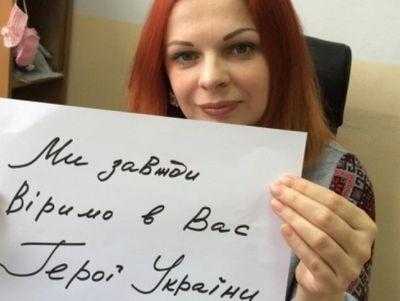 Ми завжди
Віримо в Вас
Герої України